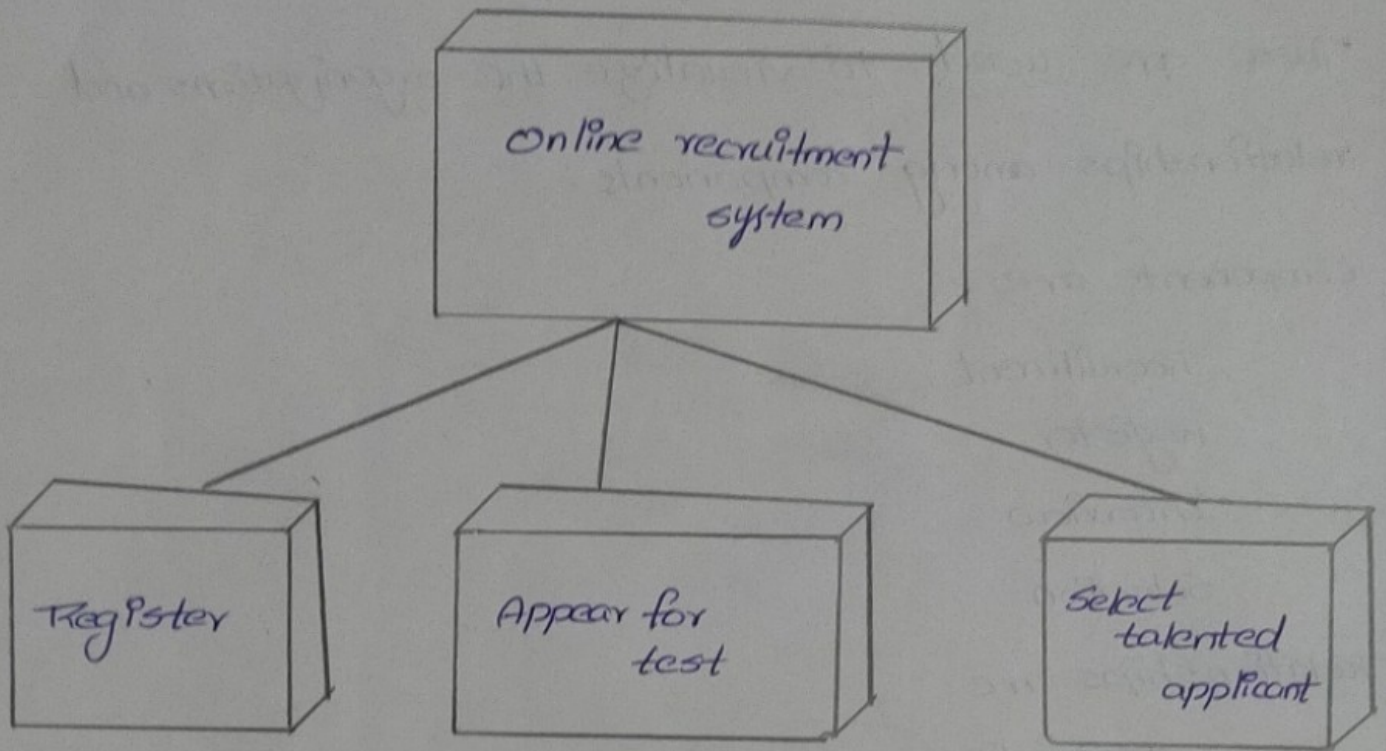 Online recruitment
system
Register
Appear for
test
Select
talented
applicant